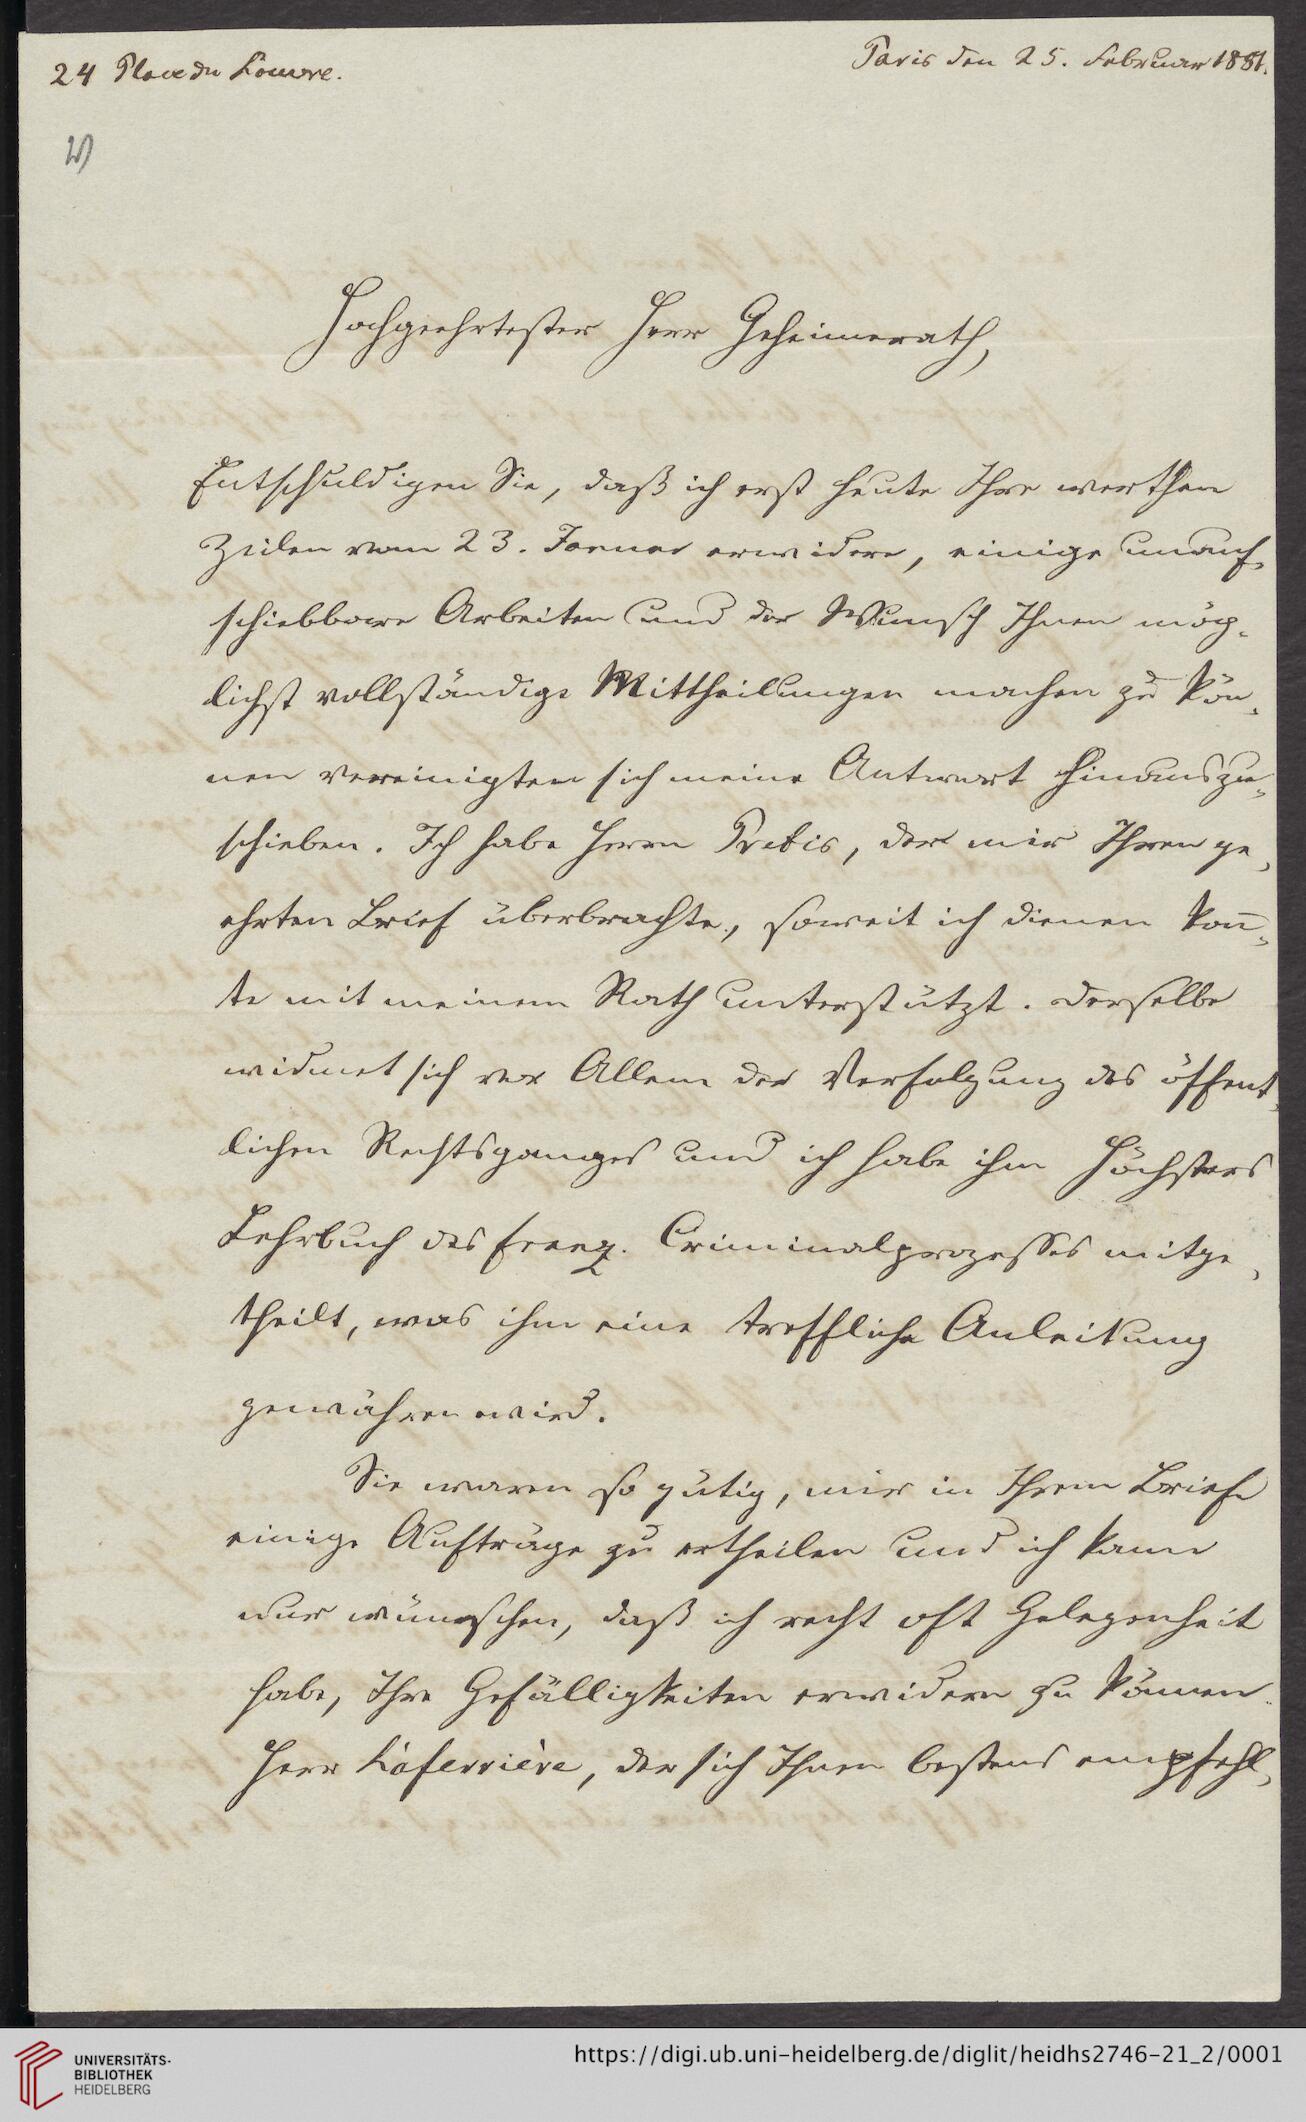 24 Place du Louvre.
Paris den 25. Februar 1851.
2)
Hochgeehrtester Herr Geheimerath,
Entschuldigen Sie, daß ich erst heute Ihre werthen
Zeilen vom 23. Januar erwidere, einige unauf-
schiebbare Arbeiten und der Wunsch Ihnen mög-
lichst vollständige Mittheilungen machen zu kön-
nen vereinigten sich meine Antwort hinauszu-
schieben. Ich habe Herrn Pretis, der mir Ihren ge-
ehrten Brief überbrachte, soweit ich dienen konn-
te mit meinem Rath unterstützt. Derselbe
widmet sich vor Allem der Verfolgung des öffent-
lichen Rechtsganges und ich habe ihm Höchsters
Lehrbuch des franz. Criminalprozesses mitge-
theilt, was ihm eine treffliche Anleitung
gewähren wird.
Sie waren so gütig, mir in Ihrem Briefe
einige Aufträge zu ertheilen und ich kann
nur wünschen, daß ich recht oft Gelegenheit
habe, Ihre Gefälligkeiten erwidern zu können.
Herr Laferrière, der sich Ihnen bestens empfehl-
UNIVERSITÄTS-
BIBLIOTHEK
HEIDELBERG
https://digi.ub.uni-heidelberg.de/diglit/heidhs2746-21_2/0001